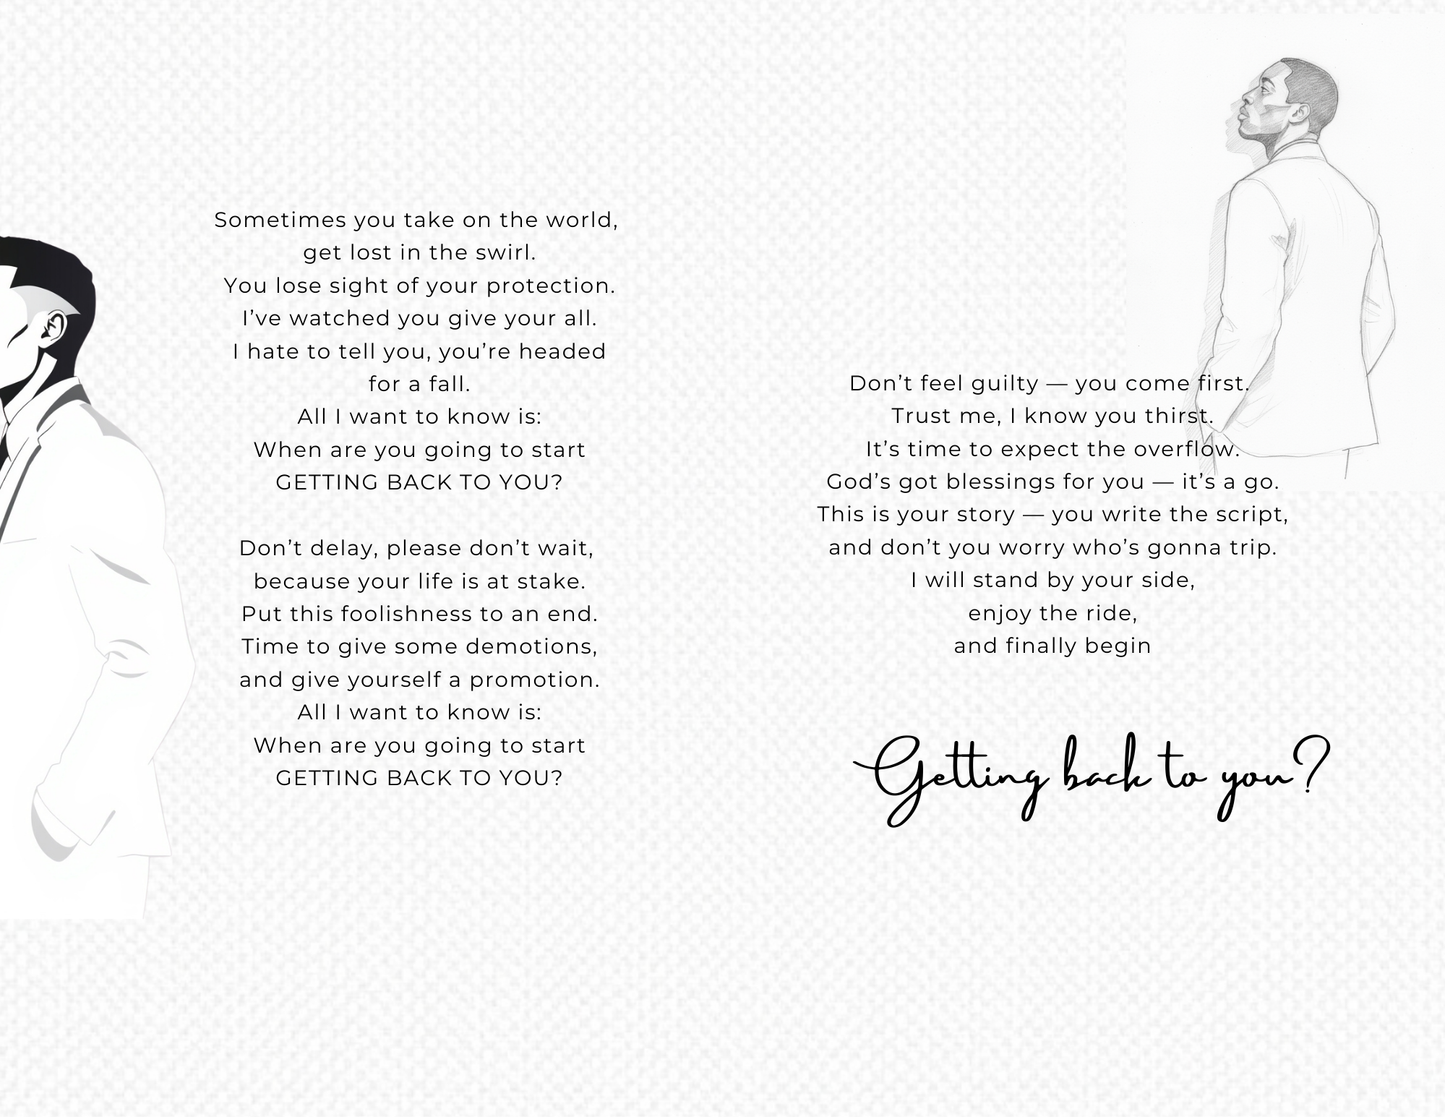 Sometimes you take on the world,
get lost in the swirl.
You lose sight of your protection.
I’ve watched you give your all.
I hate to tell you, you’re headed
for a fall.
All I want to know is:
When are you going to start
GETTING BACK TO YOU?
Don’t delay, please don’t wait,
because your life is at stake.
Put this foolishness to an end.
Time to give some demotions,
and give yourself a promotion.
All I want to know is:
When are you going to start
GETTING BACK TO YOU?
Don’t feel guilty — you come first.
Trust me, I know you thirst.
It’s time to expect the overflow.
God’s got blessings for you — it’s a go.
This is your story — you write the script,
and don’t you worry who’s gonna trip.
I will stand by your side,
enjoy the ride,
and finally begin
Getting back to you?